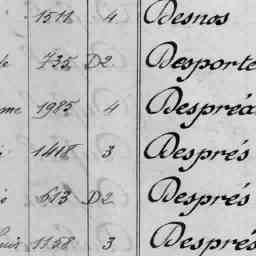 1518 4 Desnos
735 D2 Desporte
1985 4 Despréa
1418 3 Després
613 D2 Després
1158 3 Després